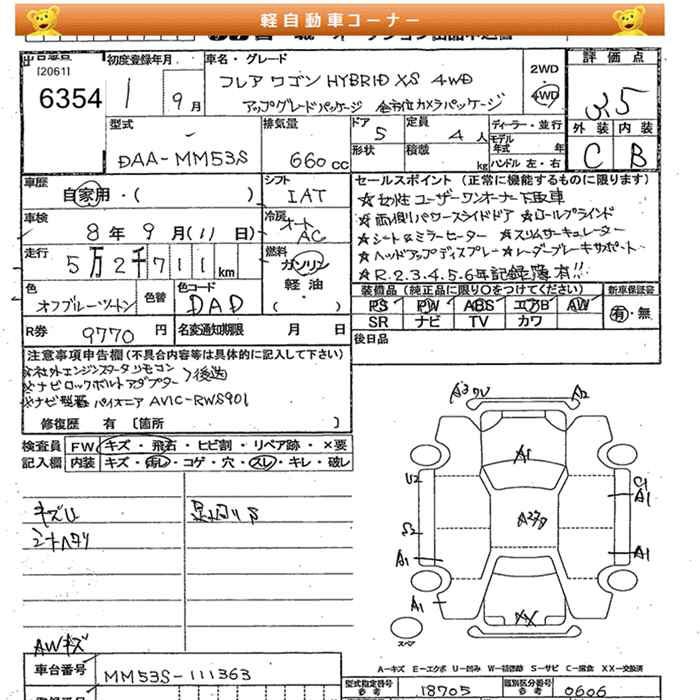 軽自動車コーナー
[2061]
6354
初度登録年月
1 9月
車名・グレード
フレアワゴン HYBRID XS 4WD
アップグレードパッケージ 全方位カメラパッケージ
2WD
4WD
評価点
3.5
外装 内装
C B
型式
DAA-MM53S
排気量
660cc
ドア
5
定員
4人
形状
積載
kg
ディーラー・並行
モデル年式 年
ハンドル 左・右
車歴
自家用・( )
シフト
IAT
車検
8年9月(11日)
冷房
オート
AC
走行
5万2千711km
燃料
ガソリン
軽油
( )
色
オフブルーツートン
色替
色コード
DAD
R券
9770円
名変通知期限 月 日
セールスポイント(正常に機能するものに限ります)
☆女性ユーザーワンオーナー下取車
☆両側パワースライドドア ☆ロールブラインド
☆シート&ミラーヒーター ☆スリムサーキュレーター
☆ヘッドアップディスプレー ☆レーダーブレーキサポート
☆R.2.3.4.5.6年記録簿有!!
装備品(純正品に限り○をつけてください)
PS PW ABS エアB AW
SR ナビ TV カワ
新車保証書
有・無
後日品
注意事項申告欄(不具合内容等は具体的に記入して下さい)
※社外エンジンスタータリモコン
※ナビロックボルトアダプター 〉後送
※ナビ型番 パイオニア AVIC-RWS901
修復歴 有〔箇所 〕
検査員 FW キズ・飛石・ヒビ割・リペア跡・×要
記入欄 内装 キズ・汚レ・コゲ・穴・スレ・キレ・破レ
キズU
シートヘタリ
足切リS
AWキズ
A3 ワV
A2
A1
U2
C1
A1
S2
A1
A1
A1
XX
スペア
A‥キズ E‥エクボ U‥凹み W‥補修跡 S‥サビ C‥腐食 XX‥交換済
車台番号
MM53S-111363
型式指定番号
参考
18705
類別区分番号
参考
0606